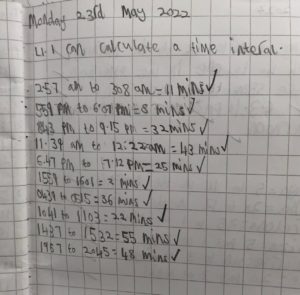 Monday 23rd May 2022
L.I. I can calculate a time interal.
2:57 am to 308 am = 11 mins ✓
559 PM to 6:07 PM = 8 mins ✓
843 PM to 9:15 PM = 32 mins ✓
11:39 am to 12:22 am = 43 mins ✓
6.47 PM to 7:12 PM = 25 mins ✓
1559 to 1601 = 2 mins ✓
0439 to 0515 = 36 mins ✓
1041 to 1103 = 22 mins ✓
1437 to 1532 = 55 mins ✓
1957 to 2045 = 48 mins ✓